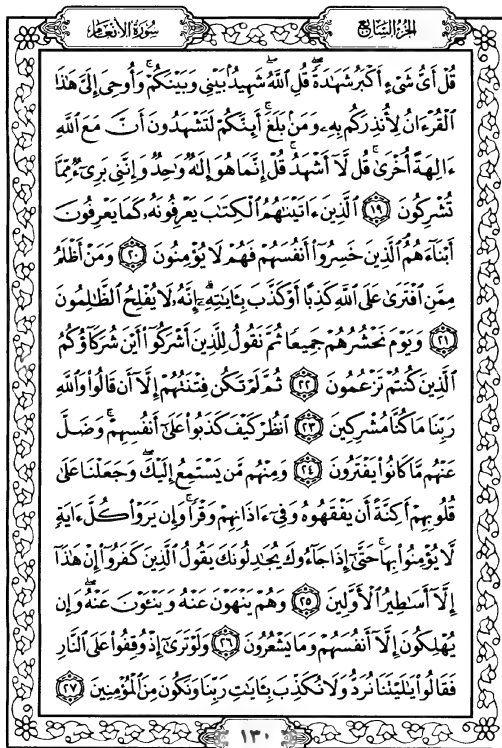 سُورَةُ الأَنْعَامِ الجُزْءُ السَّابِعُ
قُلْ أَىُّ شَىْءٍ أَكْبَرُ شَهَٰدَةً ۖ قُلِ ٱللَّهُ ۖ شَهِيدٌۢ بَيْنِى وَبَيْنَكُمْ ۚ وَأُوحِىَ إِلَىَّ هَٰذَا
ٱلْقُرْءَانُ لِأُنذِرَكُم بِهِۦ وَمَنۢ بَلَغَ ۚ أَئِنَّكُمْ لَتَشْهَدُونَ أَنَّ مَعَ ٱللَّهِ
ءَالِهَةً أُخْرَىٰ ۚ قُل لَّآ أَشْهَدُ ۚ قُلْ إِنَّمَا هُوَ إِلَٰهٌ وَٰحِدٌ وَإِنَّنِى بَرِىٓءٌ مِّمَّا
تُشْرِكُونَ ١٩ ٱلَّذِينَ ءَاتَيْنَٰهُمُ ٱلْكِتَٰبَ يَعْرِفُونَهُۥ كَمَا يَعْرِفُونَ
أَبْنَآءَهُمُ ٱلَّذِينَ خَسِرُوٓا۟ أَنفُسَهُمْ فَهُمْ لَا يُؤْمِنُونَ ٢٠ وَمَنْ أَظْلَمُ
مِمَّنِ ٱفْتَرَىٰ عَلَى ٱللَّهِ كَذِبًا أَوْ كَذَّبَ بِـَٔايَٰتِهِۦٓ ۗ إِنَّهُۥ لَا يُفْلِحُ ٱلظَّٰلِمُونَ
٢١ وَيَوْمَ نَحْشُرُهُمْ جَمِيعًا ثُمَّ نَقُولُ لِلَّذِينَ أَشْرَكُوٓا۟ أَيْنَ شُرَكَآؤُكُمُ
ٱلَّذِينَ كُنتُمْ تَزْعُمُونَ ٢٢ ثُمَّ لَمْ تَكُن فِتْنَتُهُمْ إِلَّآ أَن قَالُوا۟ وَٱللَّهِ
رَبِّنَا مَا كُنَّا مُشْرِكِينَ ٢٣ ٱنظُرْ كَيْفَ كَذَبُوا۟ عَلَىٰٓ أَنفُسِهِمْ ۚ وَضَلَّ
عَنْهُم مَّا كَانُوا۟ يَفْتَرُونَ ٢٤ وَمِنْهُم مَّن يَسْتَمِعُ إِلَيْكَ ۖ وَجَعَلْنَا عَلَىٰ
قُلُوبِهِمْ أَكِنَّةً أَن يَفْقَهُوهُ وَفِىٓ ءَاذَانِهِمْ وَقْرًا ۚ وَإِن يَرَوْا۟ كُلَّ ءَايَةٍ
لَّا يُؤْمِنُوا۟ بِهَا ۚ حَتَّىٰٓ إِذَا جَآءُوكَ يُجَٰدِلُونَكَ يَقُولُ ٱلَّذِينَ كَفَرُوٓا۟ إِنْ هَٰذَآ
إِلَّآ أَسَٰطِيرُ ٱلْأَوَّلِينَ ٢٥ وَهُمْ يَنْهَوْنَ عَنْهُ وَيَنْـَٔوْنَ عَنْهُ ۖ وَإِن
يُهْلِكُونَ إِلَّآ أَنفُسَهُمْ وَمَا يَشْعُرُونَ ٢٦ وَلَوْ تَرَىٰٓ إِذْ وُقِفُوا۟ عَلَى ٱلنَّارِ
فَقَالُوا۟ يَٰلَيْتَنَا نُرَدُّ وَلَا نُكَذِّبَ بِـَٔايَٰتِ رَبِّنَا وَنَكُونَ مِنَ ٱلْمُؤْمِنِينَ ٢٧
١٣٠